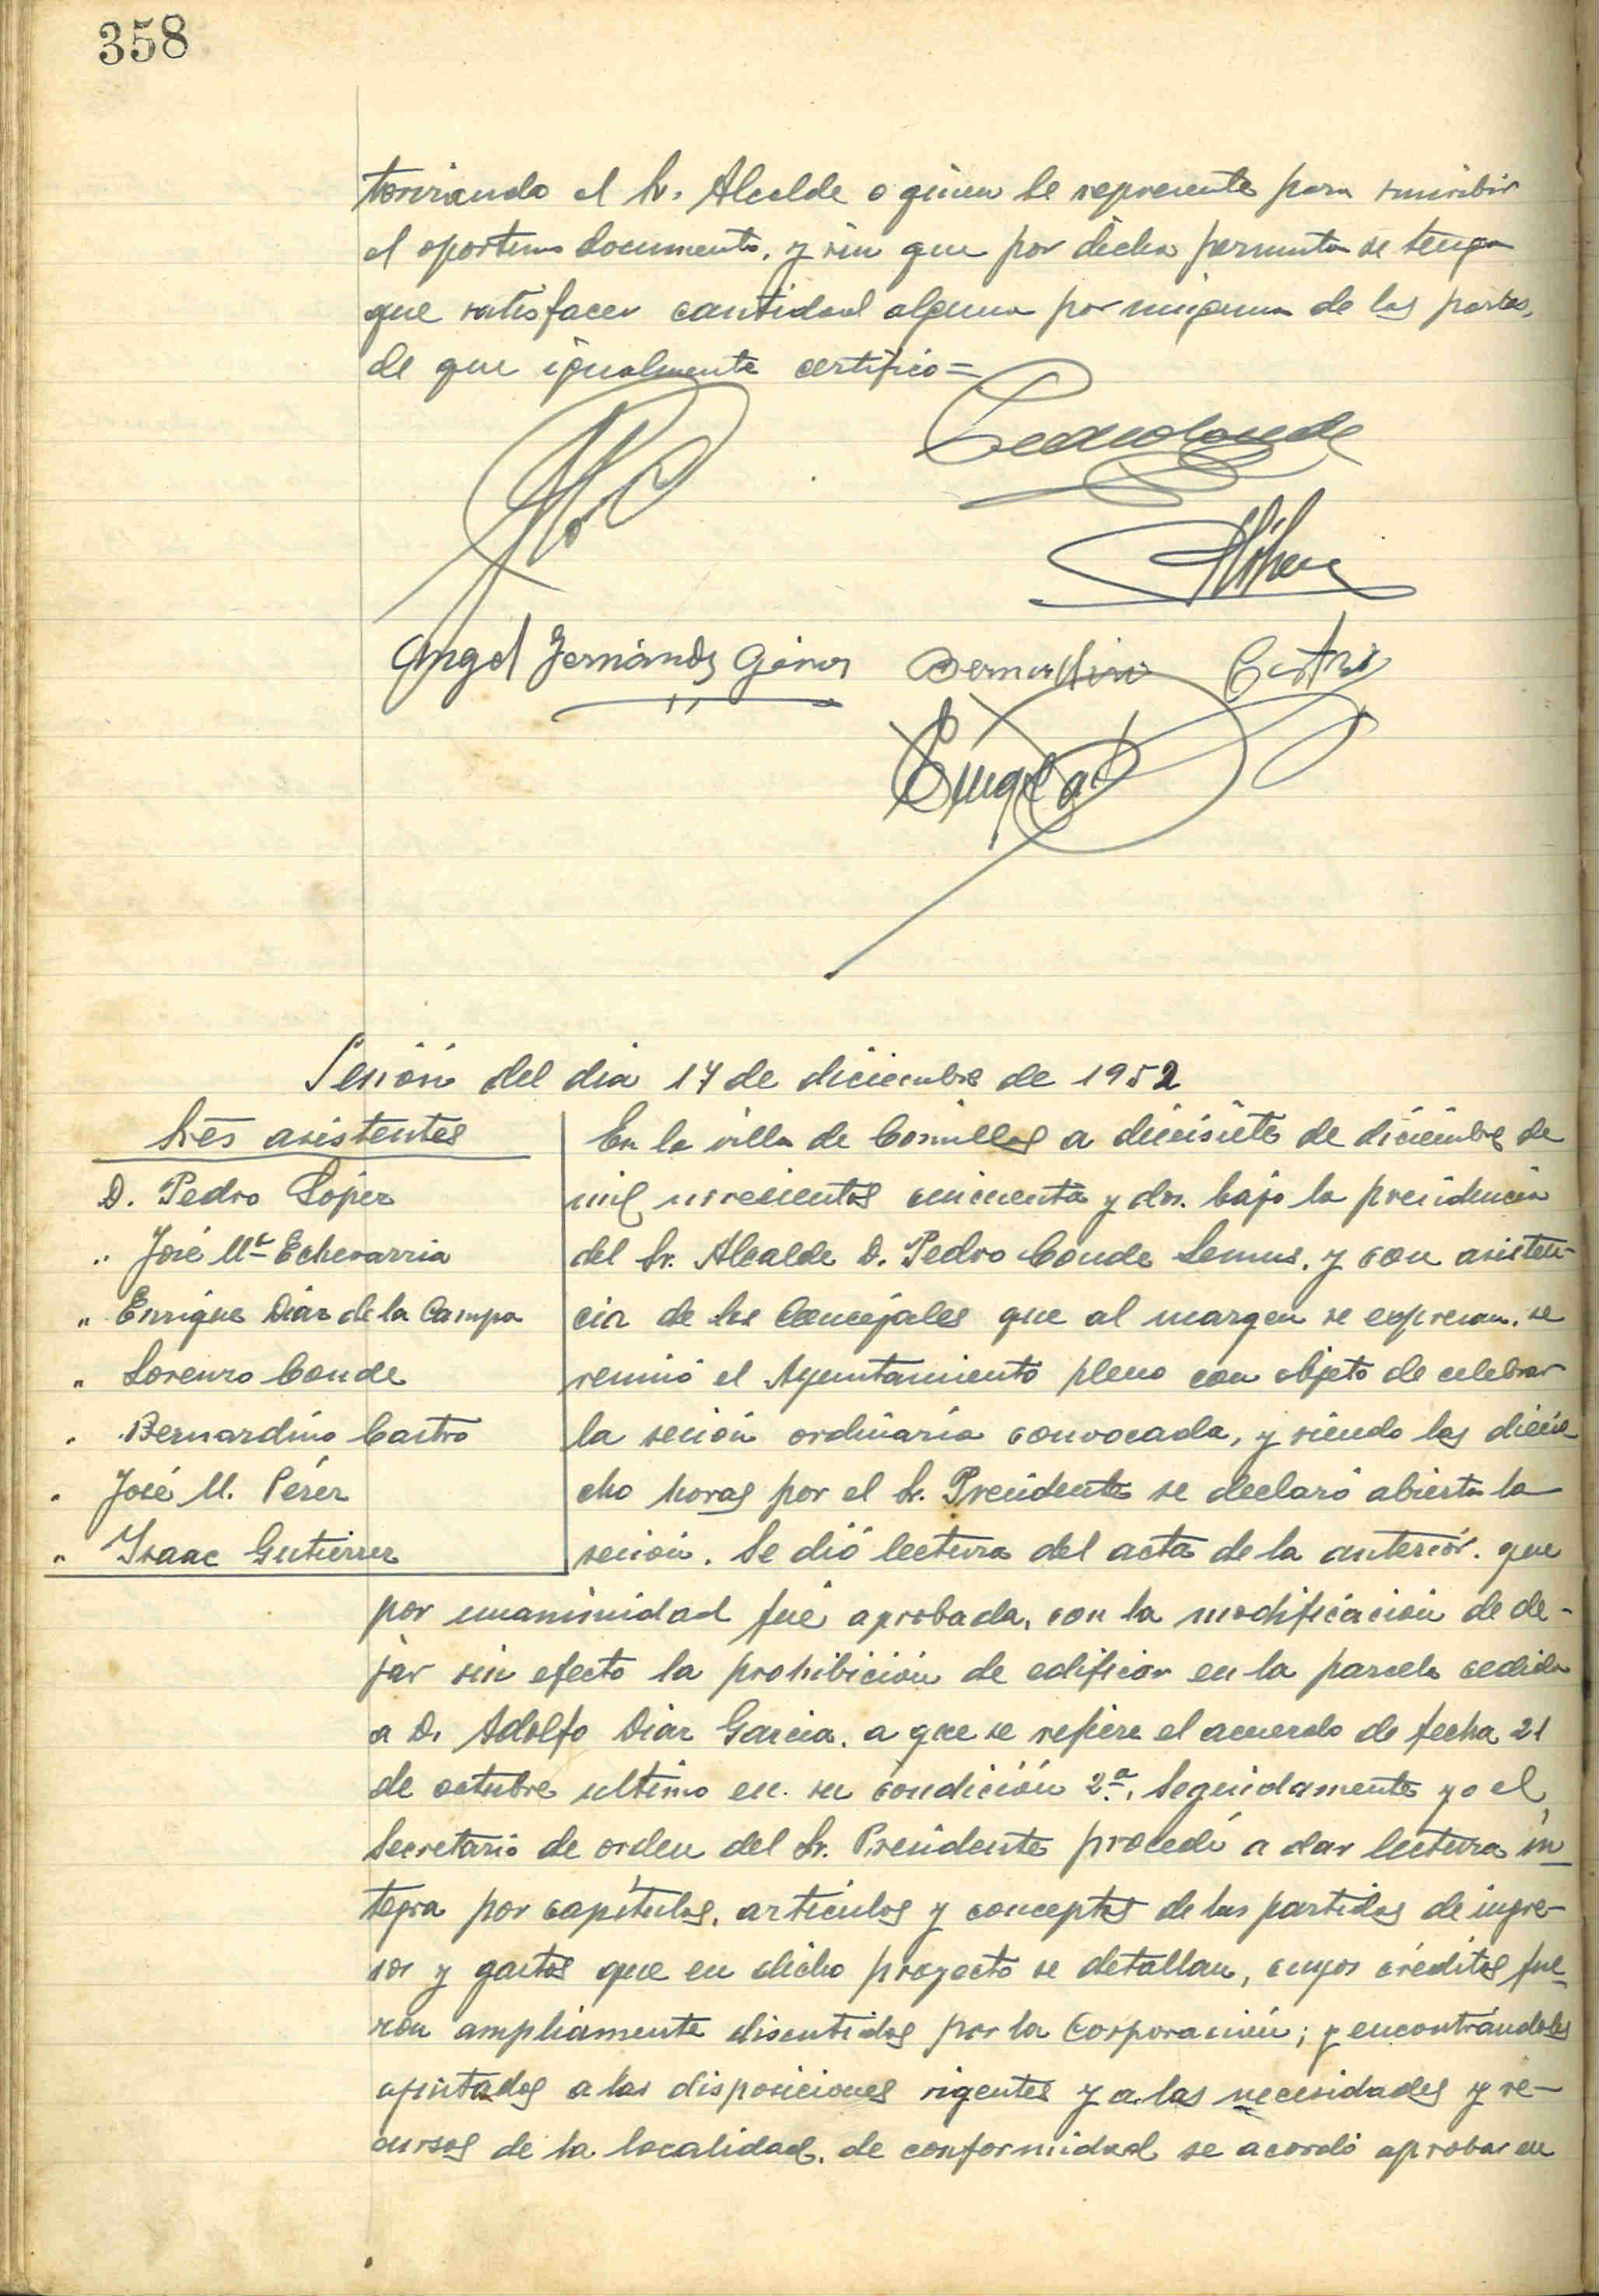 358
torizando al Sr. Alcalde o quien le represente para suscribir
el oportuno documento, y sin que por dicha permuta se tenga
que satisfacer cantidad alguna por ninguna de las partes,
de que igualmente certifico=
Pedro Conde
Angel Fernández Bernardino Castro
Sesión del dia 17 de diciembre de 1952
Sres asistentes
D. Pedro López
" José Mª Echevarria
" Enrique Diaz de la Campa
" Lorenzo Conde
" Bernardino Castro
" José M. Pérez
" Isaac Gutiérrez
En la villa de Comillas a diecisiete de diciembre de
mil novecientos cincuenta y dos. bajo la presidencia
del Sr. Alcalde D. Pedro Conde Lemus, y con asisten-
cia de los Concejales que al margen se expresan, se
reunió el Ayuntamiento pleno con objeto de celebrar
la sesión ordinaria convocada, y siendo las diecio
cho horas por el Sr. Presidente se declaró abierta la
sesión. Se dió lectura del acta de la anterior. que
por unanimidad fué aprobada, con la modificación de de-
jar sin efecto la prohibición de edificar en la parcela cedida
a D. Adolfo Diaz Garcia, a que se refiere el acuerdo de fecha 21
de octubre ultimo en su condición 2ª. Seguidamente yo el
Secretario de orden del Sr. Presidente procedí a dar lectura in
tegra por capítulos, artículos y conceptos de las partidas de ingre-
sos y gastos que en dicho proyecto se detallan, cuyos créditos fue
ron ampliamente discutidos por la Corporación; y encontrándoles
ajustados a las disposiciones vigentes y a las necesidades y re-
cursos de la localidad, de conformidad se acordó aprobar en